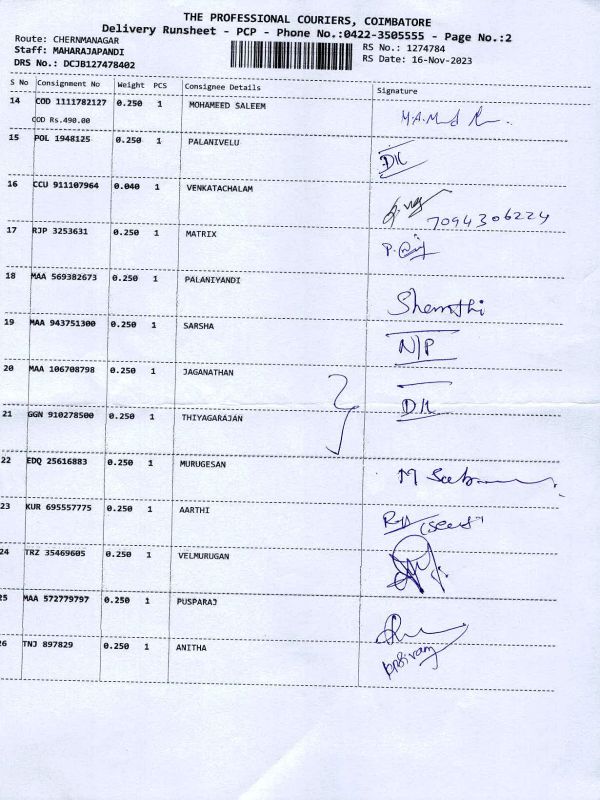 THE PROFESSIONAL COURIERS, COIMBATORE
Delivery Runsheet - PCP - Phone No.:0422-3505555 - Page No.:2
Route: CHERNMANAGAR
RS No.: 1274784
Staff: MAHARAJAPANDI
RS Date: 16-Nov-2023
DRS No.: DCJB127478402
S No Consignment No Weight PCS Consignee Details Signature
14 COD 1111782127 0.250 1 MOHAMEED SALEEM
COD Rs.490.00
15 POL 1948125 0.250 1 PALANIVELU
DK
16 CCU 911107964 0.040 1 VENKATACHALAM
7094306224
17 RJP 3253631 0.250 1 MATRIX
18 MAA 569382673 0.250 1 PALANIYANDI
19 MAA 943751300 0.250 1 SARSHA
N/P
20 MAA 106708798 0.250 1 JAGANATHAN
DK
21 GGN 910278500 0.250 1 THIYAGARAJAN
22 EDQ 25616883 0.250 1 MURUGESAN
23 KUR 695557775 0.250 1 AARTHI
24 TRZ 35469605 0.250 1 VELMURUGAN
25 MAA 572779797 0.250 1 PUSPARAJ
26 TNJ 897829 0.250 1 ANITHA